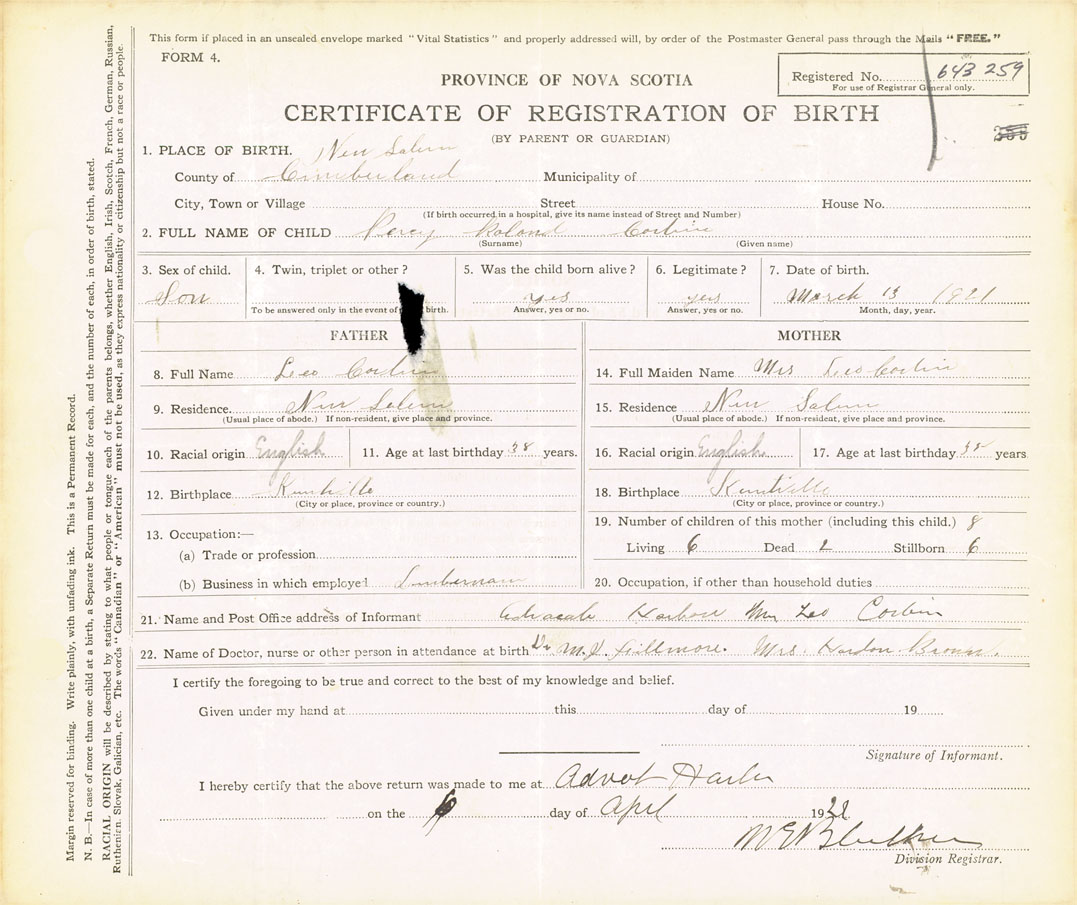 This form if placed in an unsealed envelope marked "Vital Statistics" and properly addressed will, by order of the Postmaster General pass through the Mails "FREE."
FORM 4.
PROVINCE OF NOVA SCOTIA
Registered No. 643 259
For use of Registrar General only.
CERTIFICATE OF REGISTRATION OF BIRTH
(BY PARENT OR GUARDIAN)
1. PLACE OF BIRTH. New Salem
County of Cumberland Municipality of
City, Town or Village Street House No.
(If birth occurred in a hospital, give its name instead of Street and Number)
2. FULL NAME OF CHILD Percy Roland Corbin
(Surname) (Given name)
3. Sex of child. 4. Twin, triplet or other? 5. Was the child born alive? 6. Legitimate? 7. Date of birth.
Son yes yes March 13 1921
To be answered only in the event of birth. Answer, yes or no. Answer, yes or no. Month, day, year.
FATHER
8. Full Name Leo Corbin
9. Residence. New Salem
(Usual place of abode.) If non-resident, give place and province.
10. Racial origin English 11. Age at last birthday 38 years.
12. Birthplace Kentville
(City or place, province or country.)
13. Occupation:—
(a) Trade or profession
(b) Business in which employed Lumberman
MOTHER
14. Full Maiden Name Mrs Leo Corbin
15. Residence New Salem
(Usual place of abode.) If non-resident, give place and province.
16. Racial origin English 17. Age at last birthday years
18. Birthplace Kentville
(City or place, province or country.)
19. Number of children of this mother (including this child.) 8
Living 6 Dead 2 Stillborn 6
20. Occupation, if other than household duties
21. Name and Post Office address of Informant Advocate Harbour Leo Corbin
22. Name of Doctor, nurse or other person in attendance at birth Dr Gillmore. Mrs. Brown.
I certify the foregoing to be true and correct to the best of my knowledge and belief.
Given under my hand at this day of 19
Signature of Informant.
I hereby certify that the above return was made to me at Harbor
on the 6 day of April 1921
Division Registrar.
Margin reserved for binding. Write plainly, with unfading ink. This is a Permanent Record.
N. B.—In case of more than one child at a birth, a Separate Return must be made for each, and the number of each, in order of birth, stated.
RACIAL ORIGIN will be described by stating to what people or tongue each of the parents belongs, whether English, Irish, Scotch, French, German, Russian,
Ruthenian, Slovak, Galician, etc. The words "Canadian" or "American" must not be used, as they express nationality or citizenship but not a race or people.